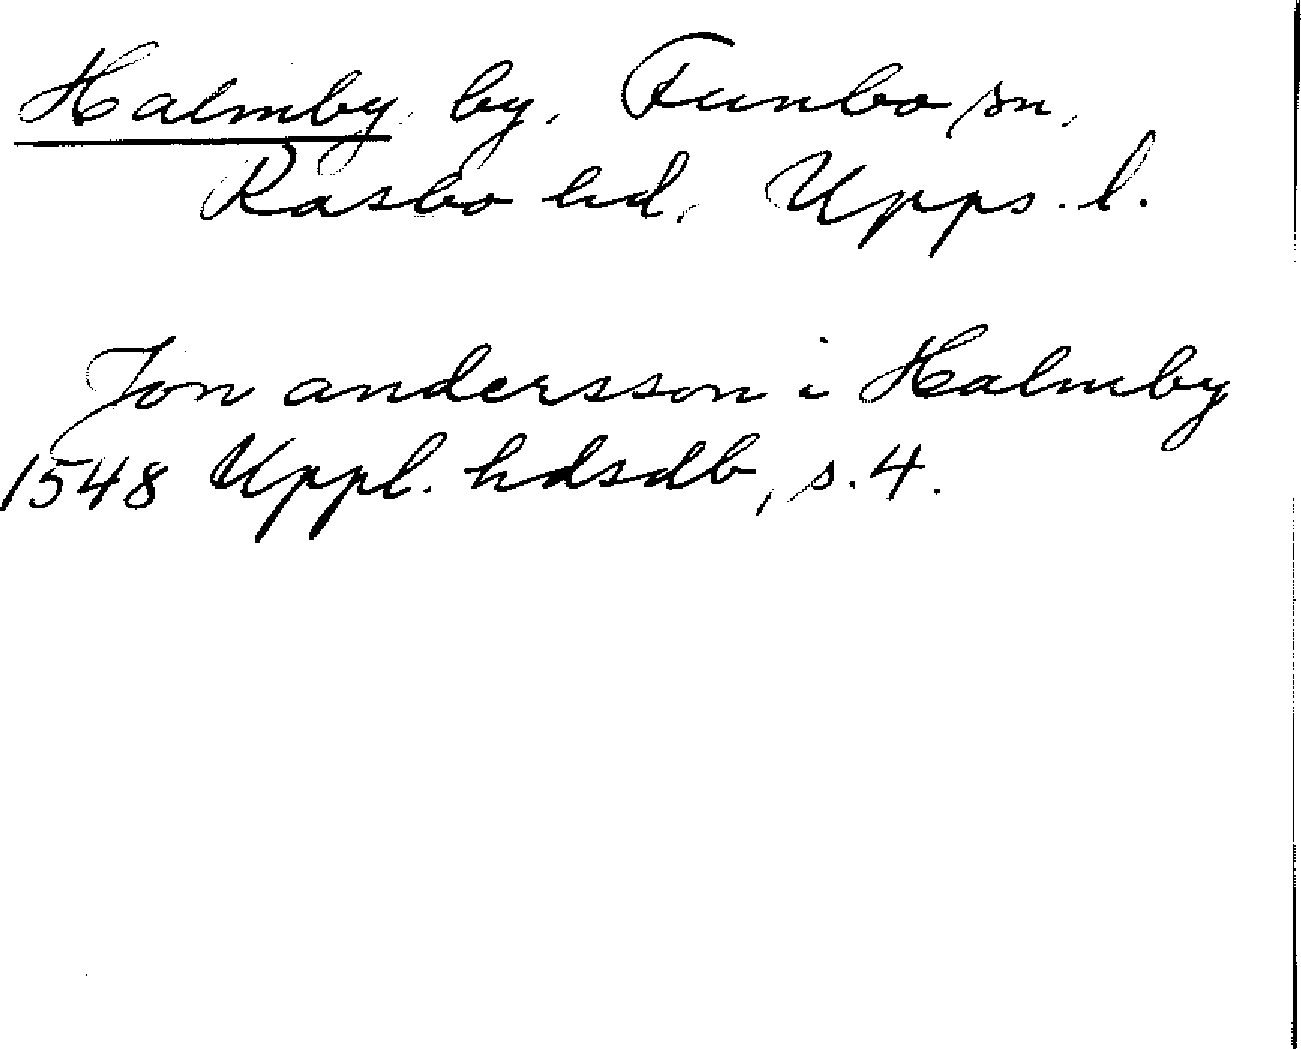 Halmby, by, Funbo sn,
Rasbo hd, Upps. l.
Jon andersson i Halmby
1548 Uppl. hdsdb, s. 4.